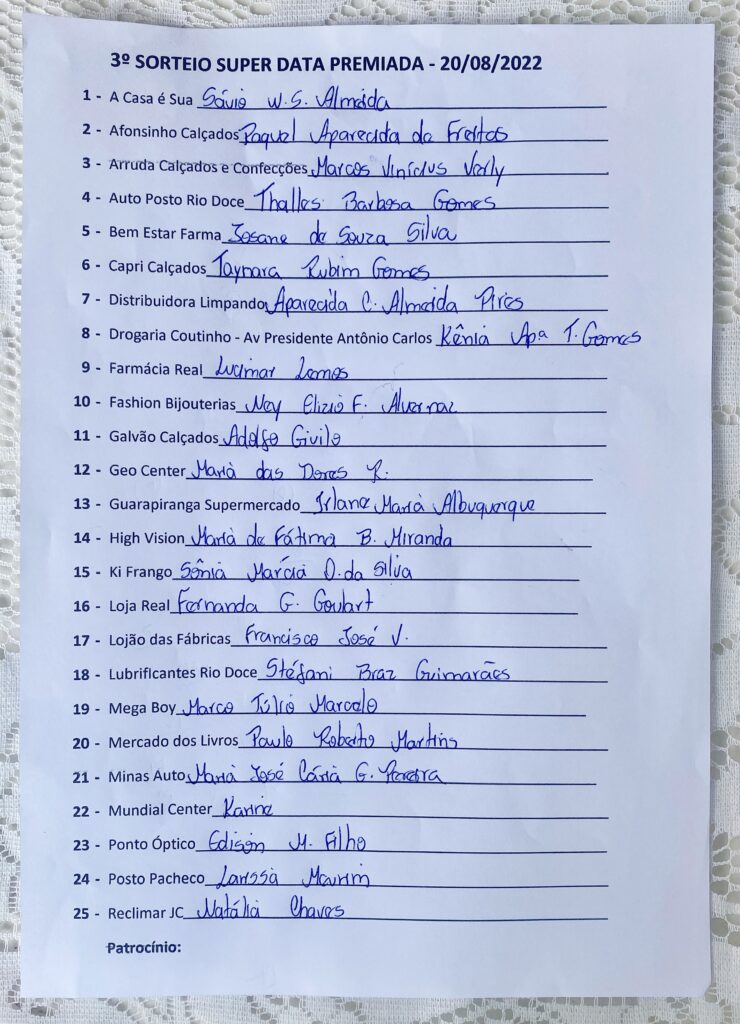 3º SORTEIO SUPER DATA PREMIADA - 20/08/2022
1 - A Casa é Sua Sávio W.S. Almeida
2 - Afonsinho Calçados Raquel Aparecida de Freitas
3 - Arruda Calçados e Confecções Marcos Vinícius Verly
4 - Auto Posto Rio Doce Thalles Barbosa Gomes
5 - Bem Estar Farma Josane de Souza Silva
6 - Capri Calçados Taynara Rubim Gomes
7 - Distribuidora Limpando Aparecida C. Almeida Pires
8 - Drogaria Coutinho - Av Presidente Antônio Carlos Kênia Apª T. Gomes
9 - Farmácia Real Lucimar Lemos
10 - Fashion Bijouterias Ney Elizio F. Alvernaz
11 - Galvão Calçados Adolfo Givilo
12 - Geo Center Maria das Dores R.
13 - Guarapiranga Supermercado Irlane Maria Albuquerque
14 - High Vision Maria de Fátima B. Miranda
15 - Ki Frango Sônia Márcia D. da Silva
16 - Loja Real Fernanda G. Goulart
17 - Lojão das Fábricas Francisco José V.
18 - Lubrificantes Rio Doce Stéfani Braz Guimarães
19 - Mega Boy Marco Túlio Marcelo
20 - Mercado dos Livros Paulo Roberto Martins
21 - Minas Auto Maria José Cária G. Pereira
22 - Mundial Center Karine
23 - Ponto Óptico Edison M. Filho
24 - Posto Pacheco Larissa Mourim
25 - Reclimar JC Natália Chaves
Patrocínio: